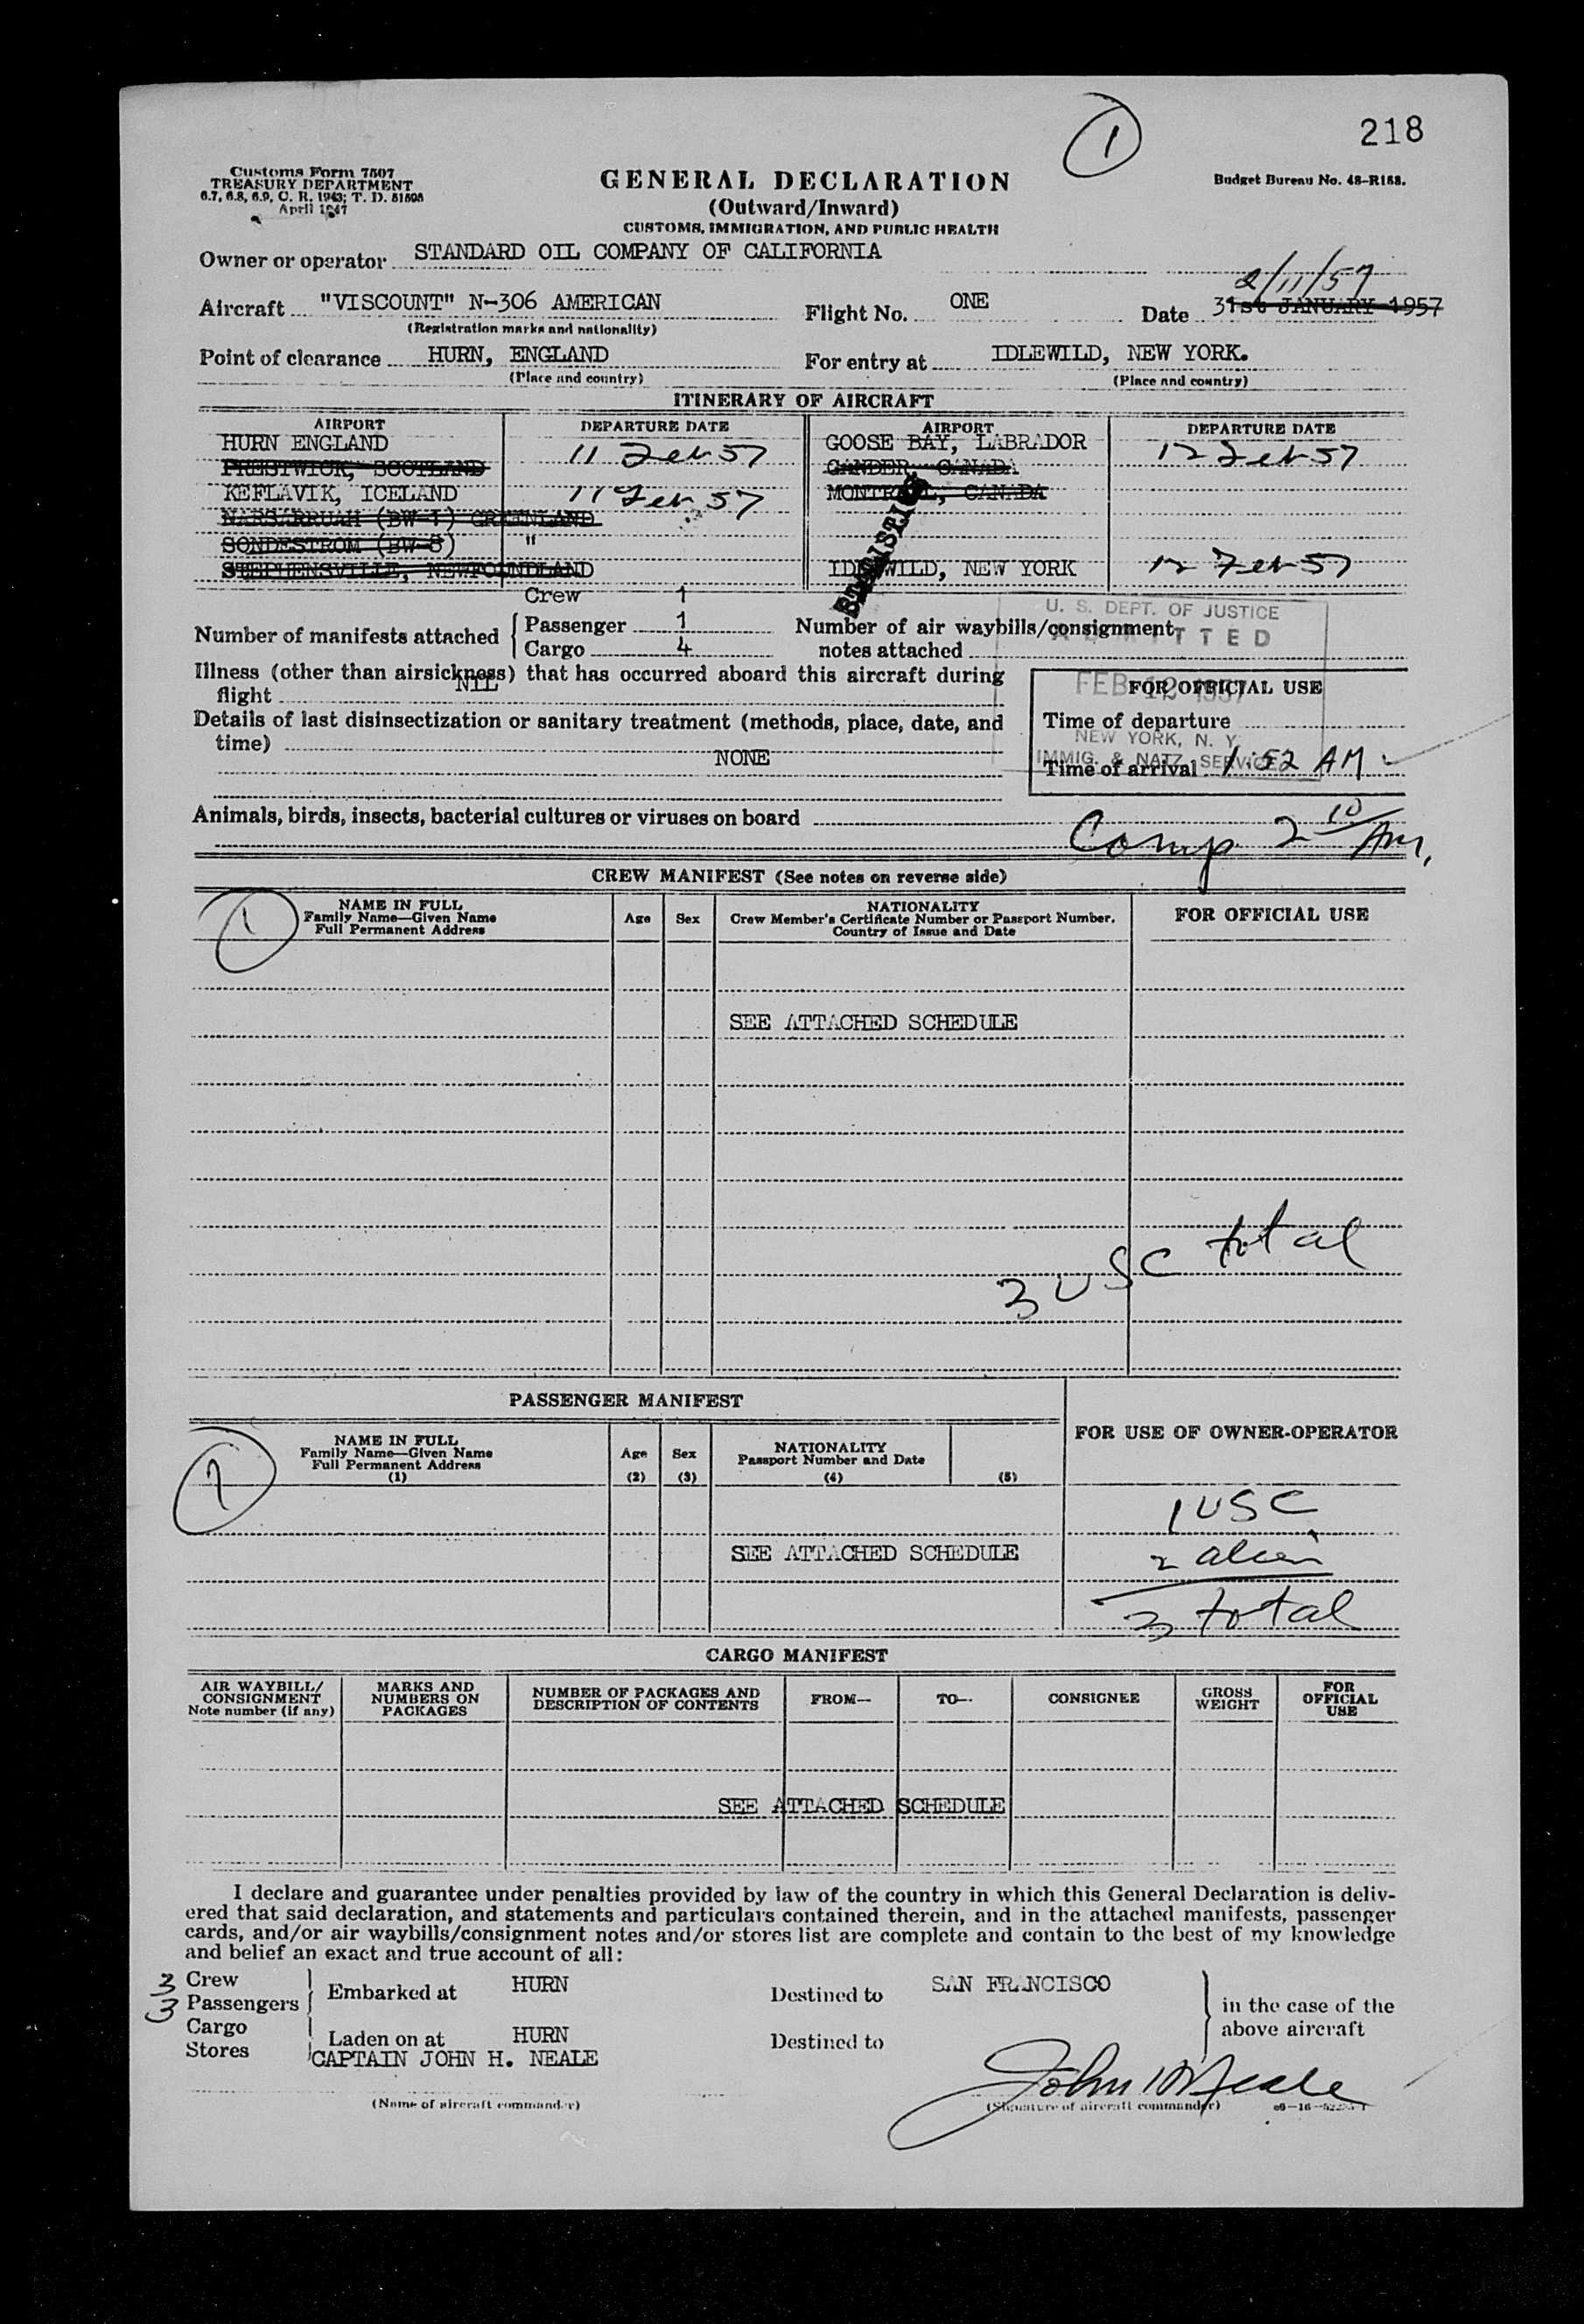 218
1
Customs Form 7507
TREASURY DEPARTMENT
6.7, 6.8, 6.9, C. R. 1943; T. D. 51898
April 1947
GENERAL DECLARATION
(Outward/Inward)
CUSTOMS, IMMIGRATION, AND PUBLIC HEALTH
Budget Bureau No. 48-R188.
Owner or operator STANDARD OIL COMPANY OF CALIFORNIA
2/11/57
Aircraft "VISCOUNT" N-306 AMERICAN Flight No. ONE Date 31st JANUARY 1957
(Registration marks and nationality)
Point of clearance HURN, ENGLAND For entry at IDLEWILD, NEW YORK.
(Place and country) (Place and country)
ITINERARY OF AIRCRAFT
AIRPORT DEPARTURE DATE AIRPORT DEPARTURE DATE
HURN ENGLAND 11 Feb 57 GOOSE BAY, LABRADOR 12 Feb 57
PRESTWICK, SCOTLAND GANDER, CANADA
KEFLAVIK, ICELAND 11 Feb 57 MONTREAL, CANADA
NARSARRUAH (BW-1) GREENLAND
SONDESTROM (BW-8) "
STEPHENSVILLE, NEWFOUNDLAND IDLEWILD, NEW YORK 12 Feb 57
STATISTICS
Number of manifests attached
Crew 1
Passenger 1
Cargo 4
Number of air waybills/consignment
notes attached
U. S. DEPT. OF JUSTICE
ADMITTED
FEB 12 1957
NEW YORK, N. Y.
IMMIG. & NATZ. SERVICE
Illness (other than airsickness) that has occurred aboard this aircraft during
flight NIL
Details of last disinsectization or sanitary treatment (methods, place, date, and
time) NONE
FOR OFFICIAL USE
Time of departure
Time of arrival 1:52 AM
Animals, birds, insects, bacterial cultures or viruses on board
Comp 2 10/AM,
CREW MANIFEST (See notes on reverse side)
1
NAME IN FULL
Family Name—Given Name
Full Permanent Address
Age Sex
NATIONALITY
Crew Member's Certificate Number or Passport Number.
Country of Issue and Date
FOR OFFICIAL USE
SEE ATTACHED SCHEDULE
3 USC total
PASSENGER MANIFEST
FOR USE OF OWNER-OPERATOR
NAME IN FULL
Family Name—Given Name
Full Permanent Address
(1)
Age
(2)
Sex
(3)
NATIONALITY
Passport Number and Date
(4)
(5)
1 USC
SEE ATTACHED SCHEDULE
2 alien
3 total
CARGO MANIFEST
AIR WAYBILL/
CONSIGNMENT
Note number (if any)
MARKS AND
NUMBERS ON
PACKAGES
NUMBER OF PACKAGES AND
DESCRIPTION OF CONTENTS
FROM—
TO—
CONSIGNEE
GROSS
WEIGHT
FOR
OFFICIAL
USE
SEE ATTACHED SCHEDULE
I declare and guarantee under penalties provided by law of the country in which this General Declaration is deliv-
ered that said declaration, and statements and particulars contained therein, and in the attached manifests, passenger
cards, and/or air waybills/consignment notes and/or stores list are complete and contain to the best of my knowledge
and belief an exact and true account of all:
3 Crew
3 Passengers
Embarked at HURN Destined to SAN FRANCISCO
Cargo
Stores
Laden on at HURN Destined to
in the case of the
above aircraft
CAPTAIN JOHN H. NEALE
John H Neale
(Name of aircraft commander) (Signature of aircraft commander)